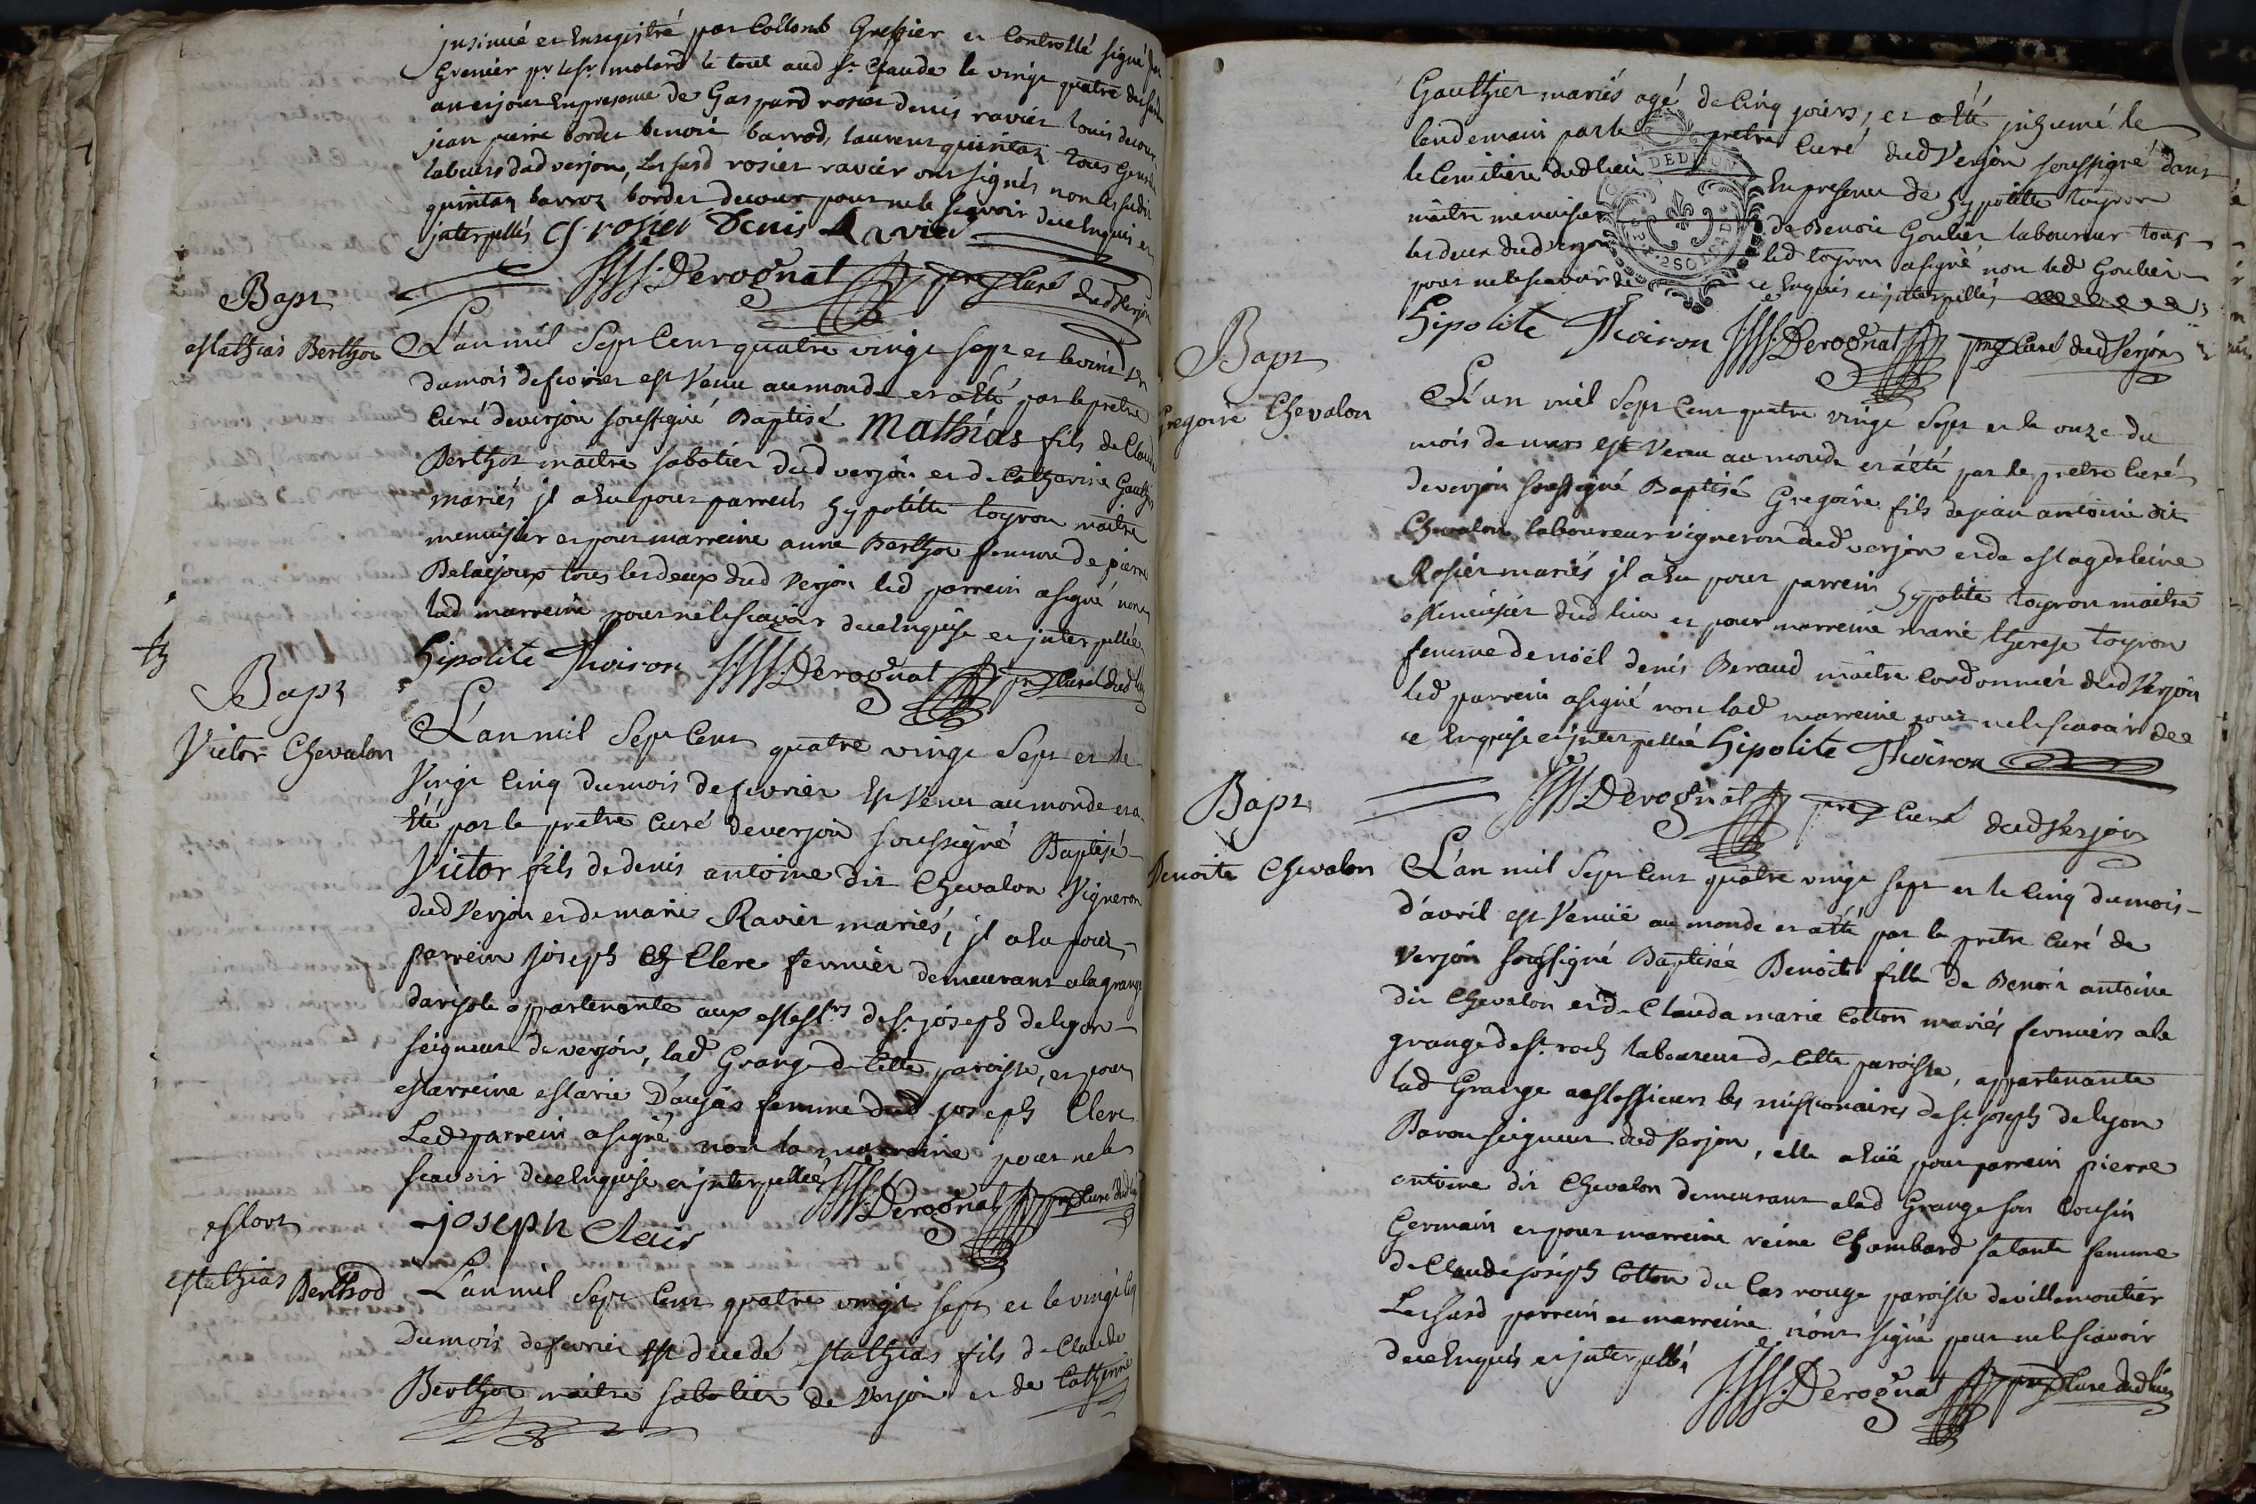 insinué et enregistré par Collomb Greffier et Controllé signé
Grenier pr le sr molard le tout aud St Claude le vingt quatre
an et jour en presence de Gaspard rosier denis ravier louis decour
jean pierre bordet benoit barrod, laurent quintan tous
labeurs dud verjon, Les susd rosier ravier ont signés non les susdits
quintan barroz bordet decour pour ne le sçavoir de ce enquis et
interpellés rosier Denis Ravier
Derognat pre Curé dud Verjon
Bapt
Mathias Berthot
L'an mil Sept Cent quatre vingt sept et le vingt un
du mois de fevrier est Venu au monde et a été par le pretre
Curé de verjon soussigné Baptisé Mathias fils de Claude
Berthot maitre sabotier dud verjon et de Catharine Gauthier
mariés il a eu pour parrein hypolitte toyron maitre
menuisier et pour marreine anne Berthot femme de pierre
Belaijoux tous les deux dud Verjon led parrein a signé non
lad marreine pour ne le scavoir de ce enquise et interpellée
hipolite Thoiron Derognat pre Curé dud
Bapt
Victor Chevalon
L'an mil Sept Cent quatre vingt Sept et le
Vingt Cinq du mois de fevrier Est Venu au monde et a
Eté par le pretre Curé de verjon soussigné Baptisé
Victor fils de denis antoine dit Chevalon Vigneron
dud Verjon et de marie Ravier mariés, il a eu pour
parrein joseph Clerc fermier demeurant a la grange
darisole appartenante aux Messrs de St joseph de lyon
seigneur de verjon, lad Grange de Cette paroisse, et pour
Marreine Marie Daujas femme dud joseph Clerc
Led parrein a signé non la marreine pour ne le
scavoir de ce enquise et interpellée Derognat pre Curé
joseph Clair
Mort
Mathias Berthod
L'an mil Sept Cent quatre vingt sept et le vingt Cinq
Du mois de fevrier Est decedé Mathias fils de Claude
Berthot maitre sabotier de Verjon et de Catherine
Gauthier mariés agé de Cinq jours, et a été inhumé le
lendemain par le pretre Curé dud Verjon soussigné dans
le Cemitiere dud lieu En presence de hypolitte toyron
maitre menuisier de Benoit Goulier laboureur tous
les deux dud verjon led toyron a signé non led Goulier
pour ne le scavoir de ce enquis et interpellés
hipolite Thoiron Derognat pre Curé dud Verjon
Bapt
Gregoire Chevalon
L'an mil Sept Cent quatre vingt Sept et le onze du
mois de mars est Venu au monde et a été par le pretre Curé
de verjon soussigné Baptisé Gregoire fils de jean antoine dit
Chevalon laboureur vigneron dud verjon et de Magdeleine
Rosier mariés il a eu pour parrein hypolite toyron maitre
Menuisier dud lieu et pour marreine marie therese toyron
femme de noël denis Beraud maitre Cordonnier dud Verjon
led parrein a signé non lad marreine pour ne le scavoir de
ce Enquise et interpellée hipolite Thoiron
Derognat pre Curé dud Verjon
Bapt
Benoite Chevalon
L'an mil Sept Cent quatre vingt sept et le Cinq du mois
d'avril est Venuë au monde et a été par le pretre Curé de
Verjon soussigné Baptisée Benoite fille de Benoit antoine
dit Chevalon et de Clauda marie Cotton mariés fermiers a la
grange de St roch laboureur de Cette paroisse, appartenante
lad Grange a Messieurs les missionaires de St joseph de lyon
Baron seigneur dud Verjon, elle a euë pour parrein pierre
antoine dit Chevalon demeurant a lad Grange son Cousin
Germain et pour marreine reine Chambard sa tante femme
de Claude joseph Cotton du Cas rouge paroisse de villemoutier
Les susd parrein et marreine n'ont signé pour ne le scavoir
de ce Enquis et interpellés
Derognat pre Curé dud lieu